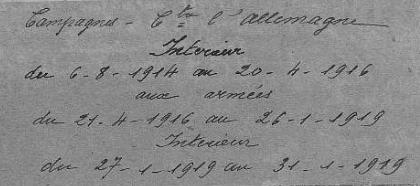 Campagnes - Ctre l'allemagne
Interieur
du 6-8-1914 au 20-4-1916
aux armées
du 21-4-1916 au 26-1-1919
Interieur
du 27-1-1919 au 31-1-1919